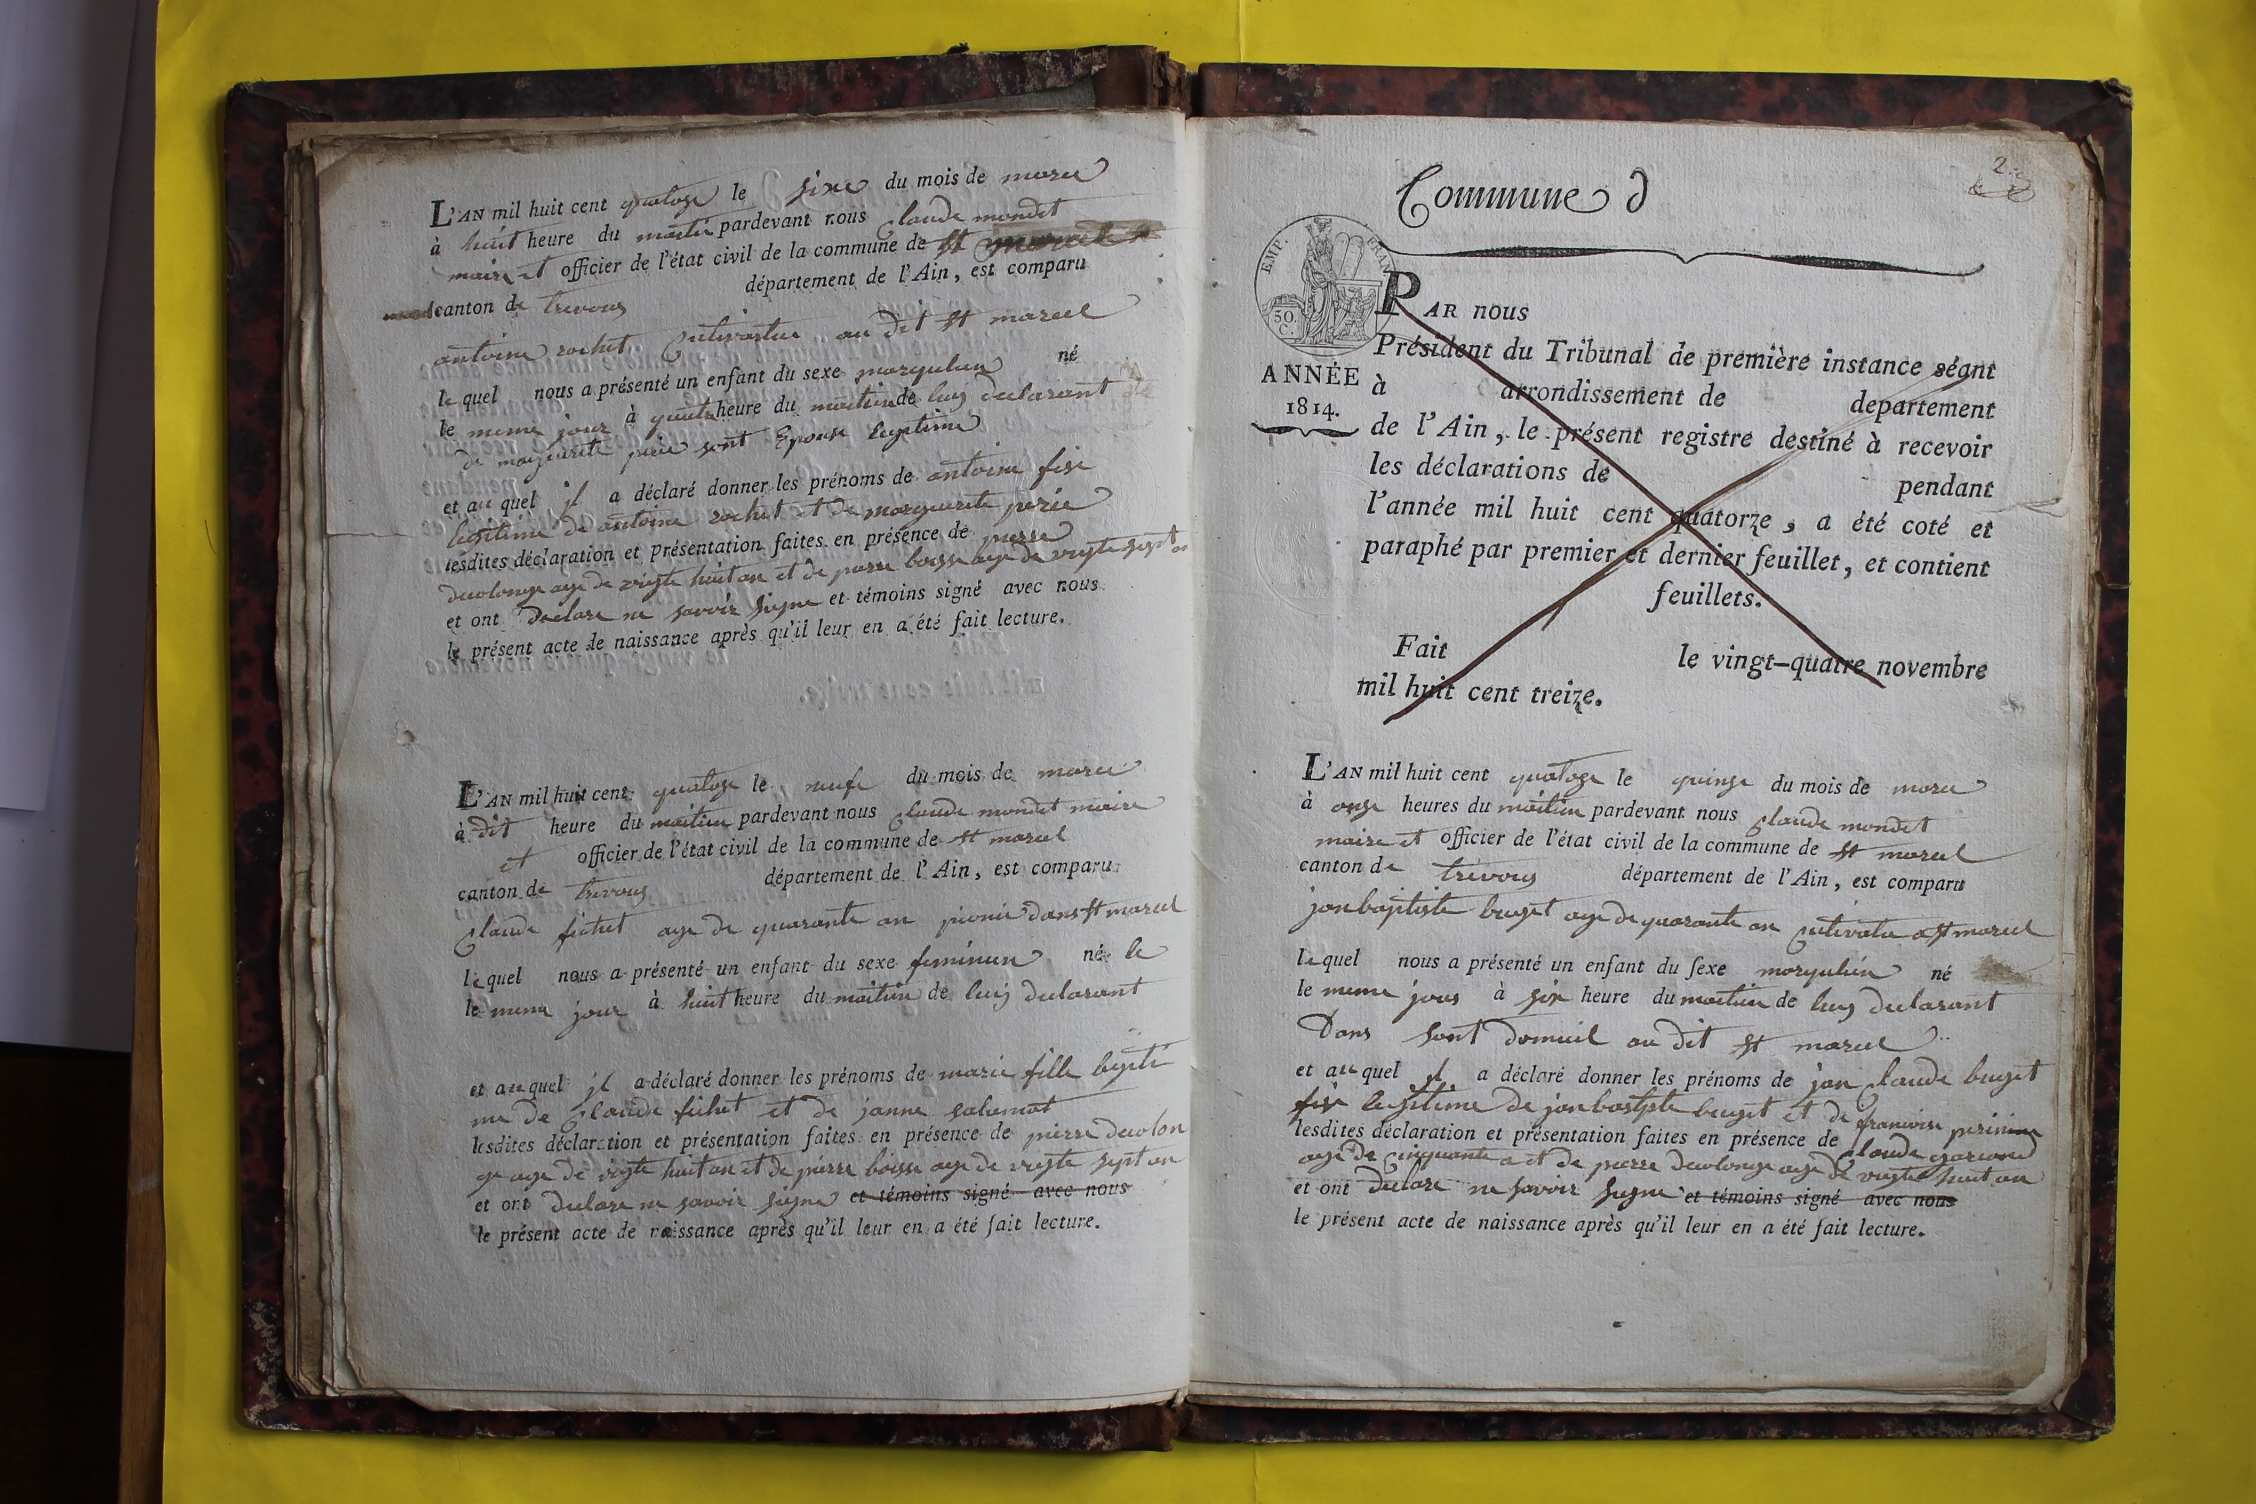 L'AN mil huit cent quatoze le sixe du mois de marce
à huit heure du matin pardevant nous Claude mondet
maire et officier de l'état civil de la commune de st
canton de trevoux département de l'Ain, est comparu
antoine rochet Cultivateur au dit st marcel
le quel nous a présenté un enfant du sexe masqulein né
le meme jour à quatre heure du matin de luy declarant
de marguerite perie sont Epouse legitime
et au quel il a déclaré donner les prénoms de antoine fise
legitime de antoine rochet et de marguerite perie
lesdites déclaration et présentation faites en présence de pierre
decolonge age de vingte huit an et de pierre boisse age de vingte sept an
et ont declare ne savoir signe et témoins signé avec nous
le présent acte de naissance après qu'il leur en a été fait lecture.
L'AN mil huit cent quatoze le neufe du mois de marce
à dit heure du matin pardevant nous Claude mondet maire
et officier de l'état civil de la commune de st marcel
canton de trevoux département de l'Ain, est comparu
Claude fichet age de quarante an dans st marcel
le quel nous a présenté un enfant du sexe feminun né le
le meme jour à huit heure du matin de luy declarant
et au quel il a déclaré donner les prénoms de marie fille legiti
me de Claude fichet et de janne salamat
lesdites déclaration et présentation faites en présence de pierre decolon
ge age de vingte huit an et de pierre boisse age de vingte sept an
et ont declare ne savoir signe et témoins signé avec nous
le présent acte de naissance après qu'il leur en a été fait lecture.
2
Commune d
EMP. FRAN
50. C.
ANNÉE
1814.
PAR nous
Président du Tribunal de première instance séant
à arrondissement de departement
de l'Ain, le présent registre destiné à recevoir
les déclarations de pendant
l'année mil huit cent quatorze, a été coté et
paraphé par premier et dernier feuillet, et contient
feuillets.
Fait le vingt-quatre novembre
mil huit cent treize.
L'AN mil huit cent quatoze le quinze du mois de marce
à onze heures du matin pardevant nous Claude mondet
maire et officier de l'état civil de la commune de st marcel
canton de trevoux département de l'Ain, est comparu
jan baptiste buget age de quarante an Cultivateur a st marcel
le quel nous a présenté un enfant du sexe masqulein né
le meme jour à six heure du matin de luy declarant
Dans sont domicil au dit st marcel
et au quel il a déclaré donner les prénoms de jan Claude buget
fise legitime de jan baptiste buget et de francoise
lesdites déclaration et présentation faites en présence de Claude
age de cinquante a et de pierre decolonge age de vingte huit an
et ont declare ne savoir signe et témoins signé avec nous
le présent acte de naissance après qu'il leur en a été fait lecture.